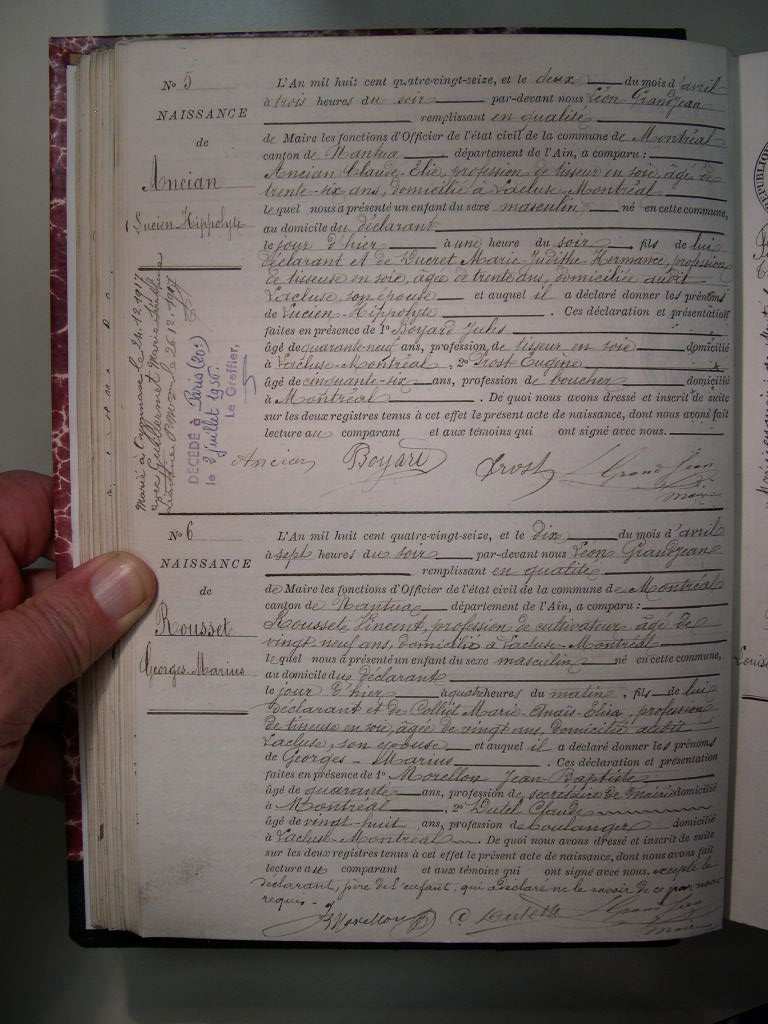 No 5
NAISSANCE
de
Ancian
Lucien-Hippolyte
Marié à Oyonnax le 24.12.1917
DÉCÉDÉ à Paris (20e)
le 2 juillet 1950.
Le Greffier,
L'An mil huit cent quatre-vingt-seize, et le deux du mois d'avril
à trois heures du soir par-devant nous Léon Grandjean
remplissant en qualité
de Maire les fonctions d'Officier de l'état civil de la commune de Montréal
canton de Nantua département de l'Ain, a comparu :
Ancian Claude-Elie, profession de tisseur en soie, âgé de
trente-six ans, domicilié à Lacluse-Montréal
lequel nous a présenté un enfant du sexe masculin né en cette commune,
au domicile du déclarant
le jour d'hier à une heure du soir, fils de lui
déclarant et de Ducret Marie Judithe Hermance, profession
de tisseuse en soie, âgée de trente ans, domiciliée audit
Lacluse, son épouse et auquel il a déclaré donner les prénoms
de Lucien-Hippolyte. Ces déclaration et présentation
faites en présence de 1o Boyard Jules
âgé de quarante-neuf ans, profession de tisseur en soie domicilié
à Lacluse-Montréal, 2o Prost Eugène
âgé de cinquante-six ans, profession de boucher domicilié
à Montréal. De quoi nous avons dressé et inscrit de suite
sur les deux registres tenus à cet effet le présent acte de naissance, dont nous avons fait
lecture au comparant et aux témoins qui ont signé avec nous.
Ancian Boyard Prost L Grandjean
maire
No 6
NAISSANCE
de
Rousset
Georges-Marius
L'An mil huit cent quatre-vingt-seize, et le dix du mois d'avril
à sept heures du soir par-devant nous Léon Grandjean
remplissant en qualité
de Maire les fonctions d'Officier de l'état civil de la commune de Montréal
canton de Nantua département de l'Ain, a comparu :
Rousset Vincent, profession de cultivateur âgé de
vingt neuf ans, domicilié à Lacluse-Montréal
lequel nous a présenté un enfant du sexe masculin né en cette commune,
au domicile du déclarant
le jour d'hier à quatre heures du matin, fils de lui
déclarant et de Colliet Marie-Anaïs-Elisa, profession
de tisseuse en soie, âgée de vingt ans, domiciliée audit
Lacluse, son épouse et auquel il a déclaré donner les prénoms
de Georges-Marius. Ces déclaration et présentation
faites en présence de 1o Morellon Jean Baptiste
âgé de quarante ans, profession de secrétaire de mairie domicilié
à Montréal, 2o Dutel Claude
âgé de vingt-huit ans, profession de boulanger domicilié
à Lacluse-Montréal. De quoi nous avons dressé et inscrit de suite
sur les deux registres tenus à cet effet le présent acte de naissance, dont nous avons fait
lecture au comparant et aux témoins qui ont signé avec nous. excepté le
déclarant, père de l'enfant qui a déclaré ne le savoir de ce par nous
requis
Morellon C. Dutel L Grandjean
maire